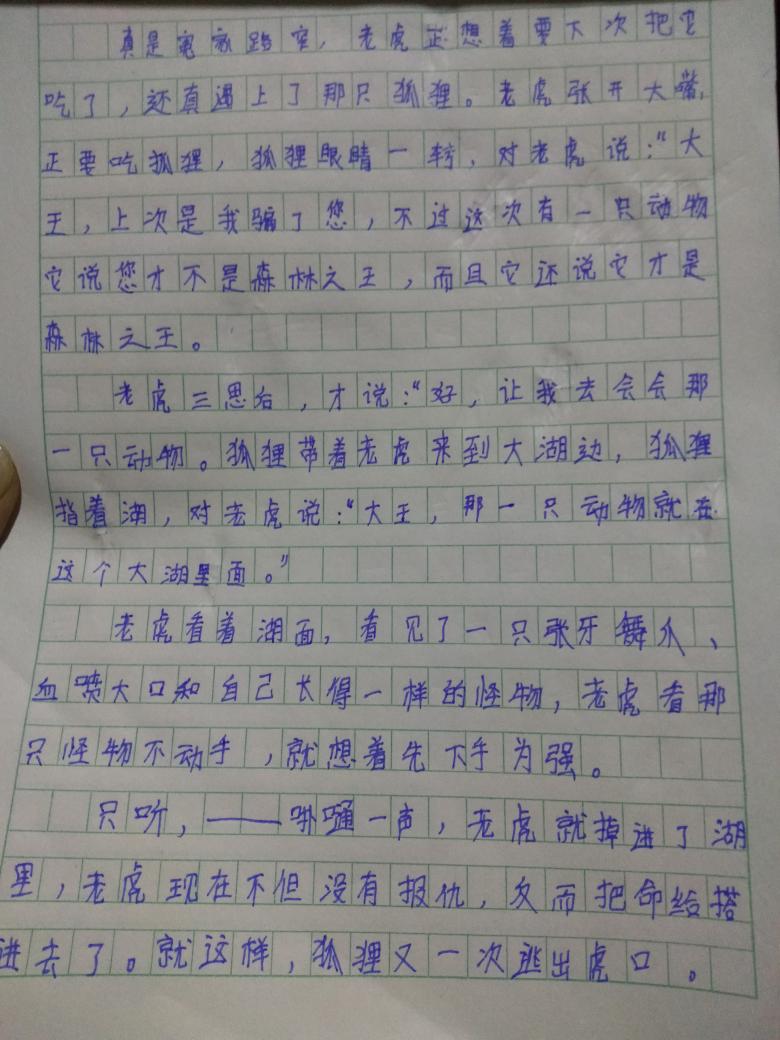 真是冤家路窄，老虎正想着要下次把它
吃了，还真遇上了那只狐狸。老虎张开大嘴，
正要吃狐狸，狐狸眼睛一转，对老虎说：“大
王，上次是我骗了您，不过这次有一只动物
它说您才不是森林之王，而且它还说它才是
森林之王。
老虎三思后，才说：“好，让我去会会那
一只动物。狐狸带着老虎来到大湖边，狐狸
指着湖，对老虎说：“大王，那一只动物就在
这个大湖里面。”
老虎看着湖面，看见了一只张牙舞爪、
血喷大口和自己长得一样的怪物，老虎看那
只怪物不动手，就想着先下手为强。
只听，——卟嗵一声，老虎就掉进了湖
里，老虎现在不但没有报仇，反而把命给搭
进去了。就这样，狐狸又一次逃出虎口。